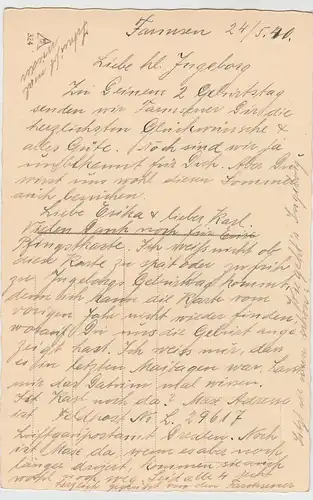 Farmsen 24/5.40.
Liebe kl. Ingeborg
Zu Deinem 2 Geburtstag
senden wir Farmsener Dir die
herzlichsten Glückwünsche &
alles Gute. Noch sind wir ja
unbekannt für Dich. Aber Du
wirst uns wohl diesen Sommer
auch besuchen.
Liebe Erika & lieber Karl.
Vielen Dank noch für Eure
Pfingstkarte. Ich weiß nicht ob
diese Karte zu spät oder zu früh
zu Ingeborgs Geburtstag kommt,
denn ich kann die Karte vom
vorigen Jahr nicht wieder finden,
worauf Du uns die Geburt ange
zeigt hast. Ich weiss nur, das
es in letzten Maitagen war. Lass
mir das Datum mal wissen.
Ist Karl noch da? Max Adresse
ist Feldpost No L. 29617
Luftgaupostamt Dresden. Noch
ist Max da wenn es aber noch
länger dauert, kommen sie auch
wohl noch weg. Seid alle 4 recht
herzlich gegrüßt von den Farmsenern
Schreibt mal
wieder
324